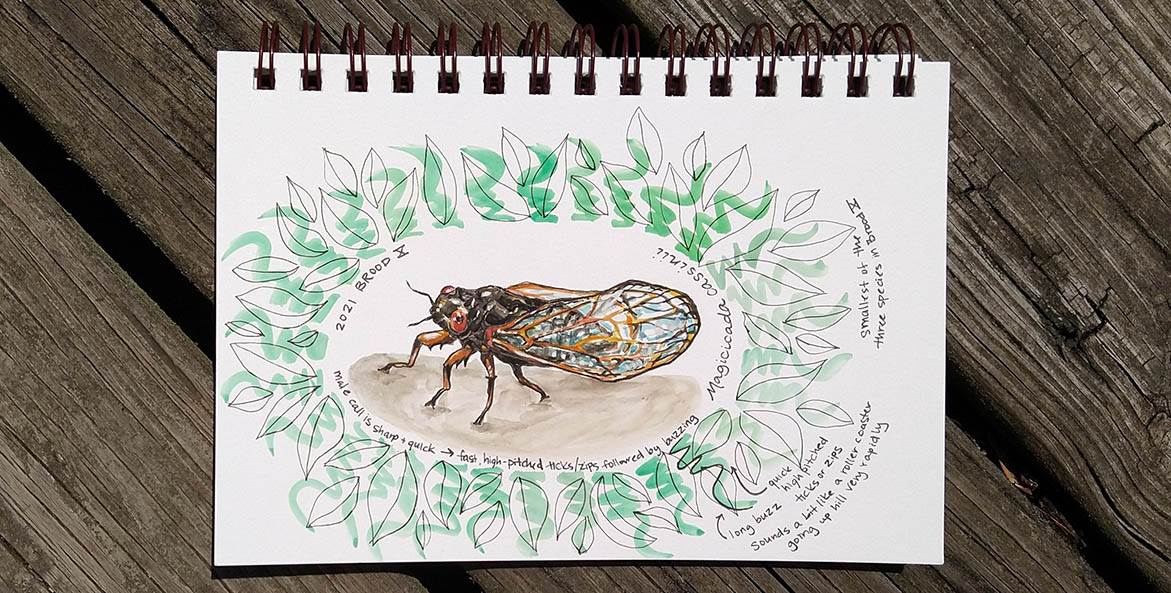 2021 BROOD X
Magicicada cassinii
smallest of the
three species in Brood X
male call is sharp + quick → fast, high-pitched ticks/zips followed by buzzing
quick
high pitched
ticks or zips
long buzz
sounds a bit like a roller coaster
going up hill very rapidly